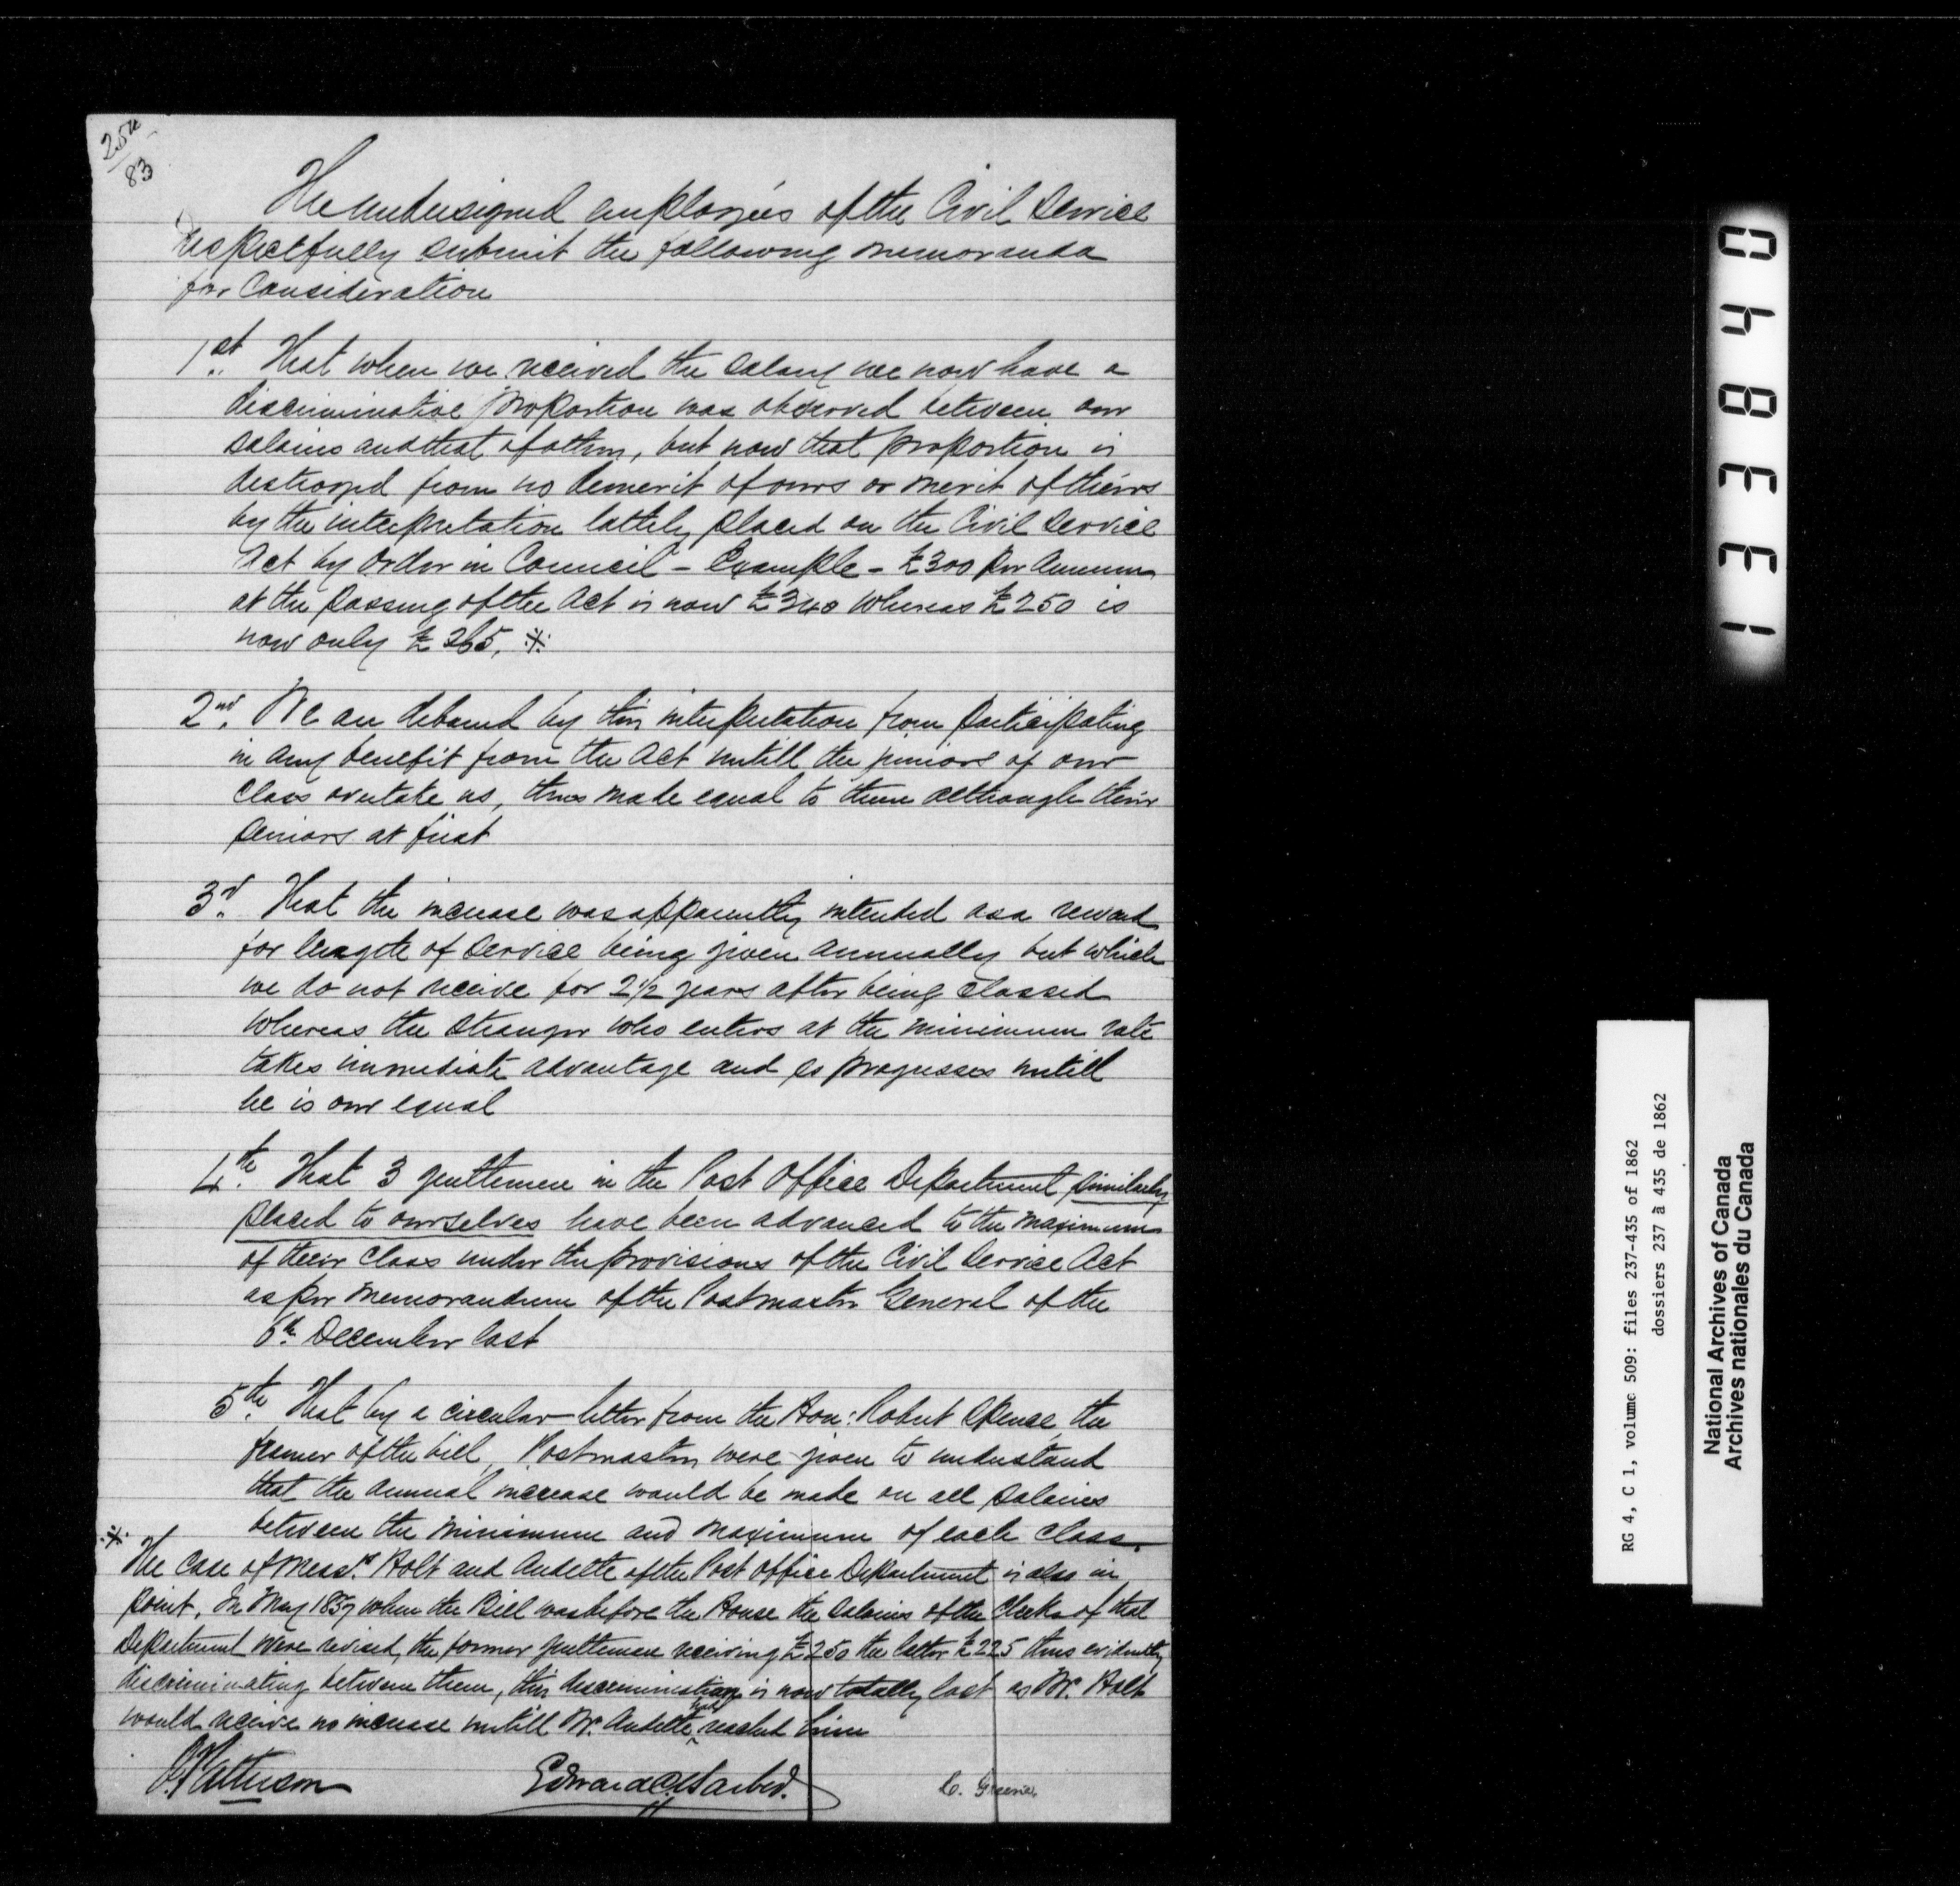 254
83
The undersigned employées of the Civil Service
respectfully submit the following memoranda
for Consideration
1st. That when we received the salary we now have a
discriminative proportion was observed between our
salaries and that of others, but now that proportion is
destroyed from no demerit of ours or merit of theirs
by the interpretation lattely placed on the Civil Service
Act by Order in Council - Example - £300 per Annum
at the passing of the Act is now £340 whereas £250 is
now only £265. ※
2nd. We are debared by this interpretation from participating
in any benefit from the Act untill the juniors of our
Class overtake us, thus made equal to them although their
seniors at first
3rd. That the increase was apparently intended as a reward
for length of service being given annually but which
we do not receive for 2 1/2 years after being classed
whereas the stranger who enters at the minimum rate
takes immediate advantage and so progresses untill
he is our equal
4th. That 3 gentlemen in the Post Office Department similarly
placed to ourselves have been advanced to the maximum
of their Class under the provisions of the Civil Service Act
as per memorandum of the Postmaster General of the
6th December last
5th. That by a circular letter from the Hon: Robert Spence, the
framer of the bill, Postmasters were given to understand
that the annual increase would be made on all salaries
between the minimum and maximum of each class.
※ The Case of Messrs. Holt and Audette of the Post Office Department is also in
point, In May 1857 when the Bill was before the House the salaries of the Clerks of that
Department were revised, the former gentleman receiving £250 the latter £225 thus evidently
discriminating between them, this discrimination is now totally lost as Mr. Holt
would receive no increase untill Mr. Audette had reached him
Edward C. Barber.
C. Greene
0
4
8
3
3
1
RG 4, C 1, volume 509: files 237-435 of 1862
dossiers 237 à 435 de 1862
National Archives of Canada
Archives nationales du Canada